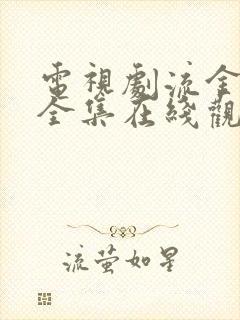 電視劇流金
全集在綫觀
流萤如星